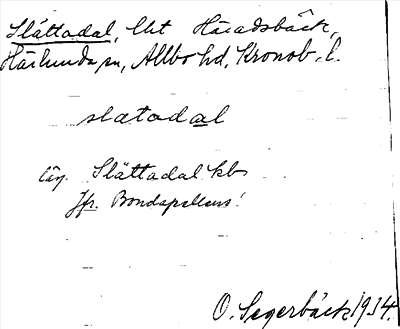 Slättadal, lht Häradsbäck,
Härlunda sn, Allbo hd, Kronob. l.
slatodal
Slättadal kb
Jfr. Bondapellens!
O. Segerbäck 1934.